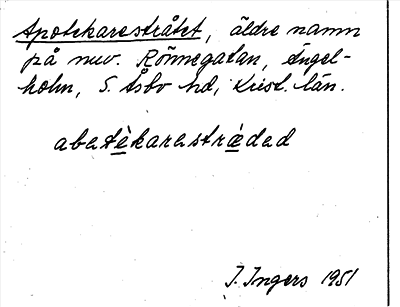 Apotekarestråtet, äldre namn
på nuv. Rönnegatan, Ängel-
holm, S. Åsbo hd, Krist. län.
abətèkarəstrǽdəd
I. Ingers 1951